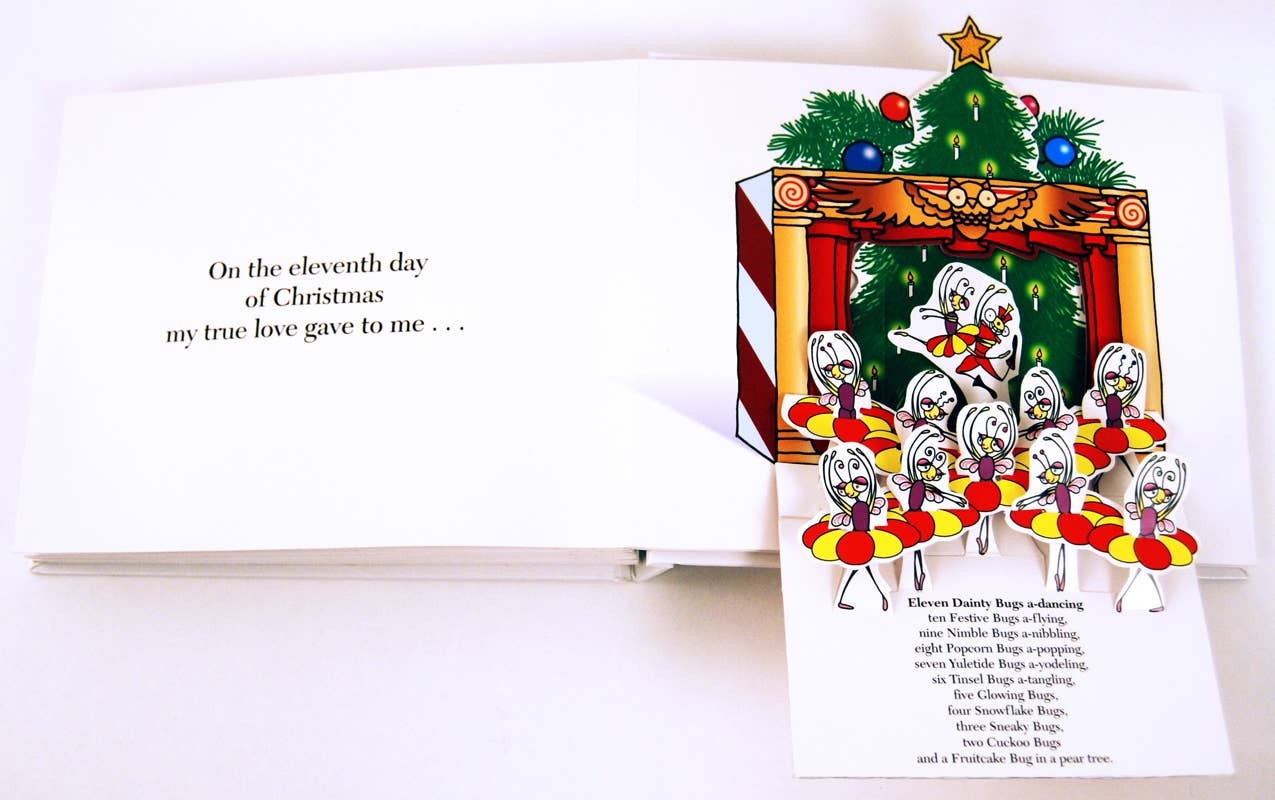 On the eleventh day
of Christmas
my true love gave to me . . .
Eleven Dainty Bugs a-dancing
ten Festive Bugs a-flying,
nine Nimble Bugs a-nibbling,
eight Popcorn Bugs a-popping,
seven Yuletide Bugs a-yodeling,
six Tinsel Bugs a-tangling,
five Glowing Bugs,
four Snowflake Bugs,
three Sneaky Bugs,
two Cuckoo Bugs
and a Fruitcake Bug in a pear tree.